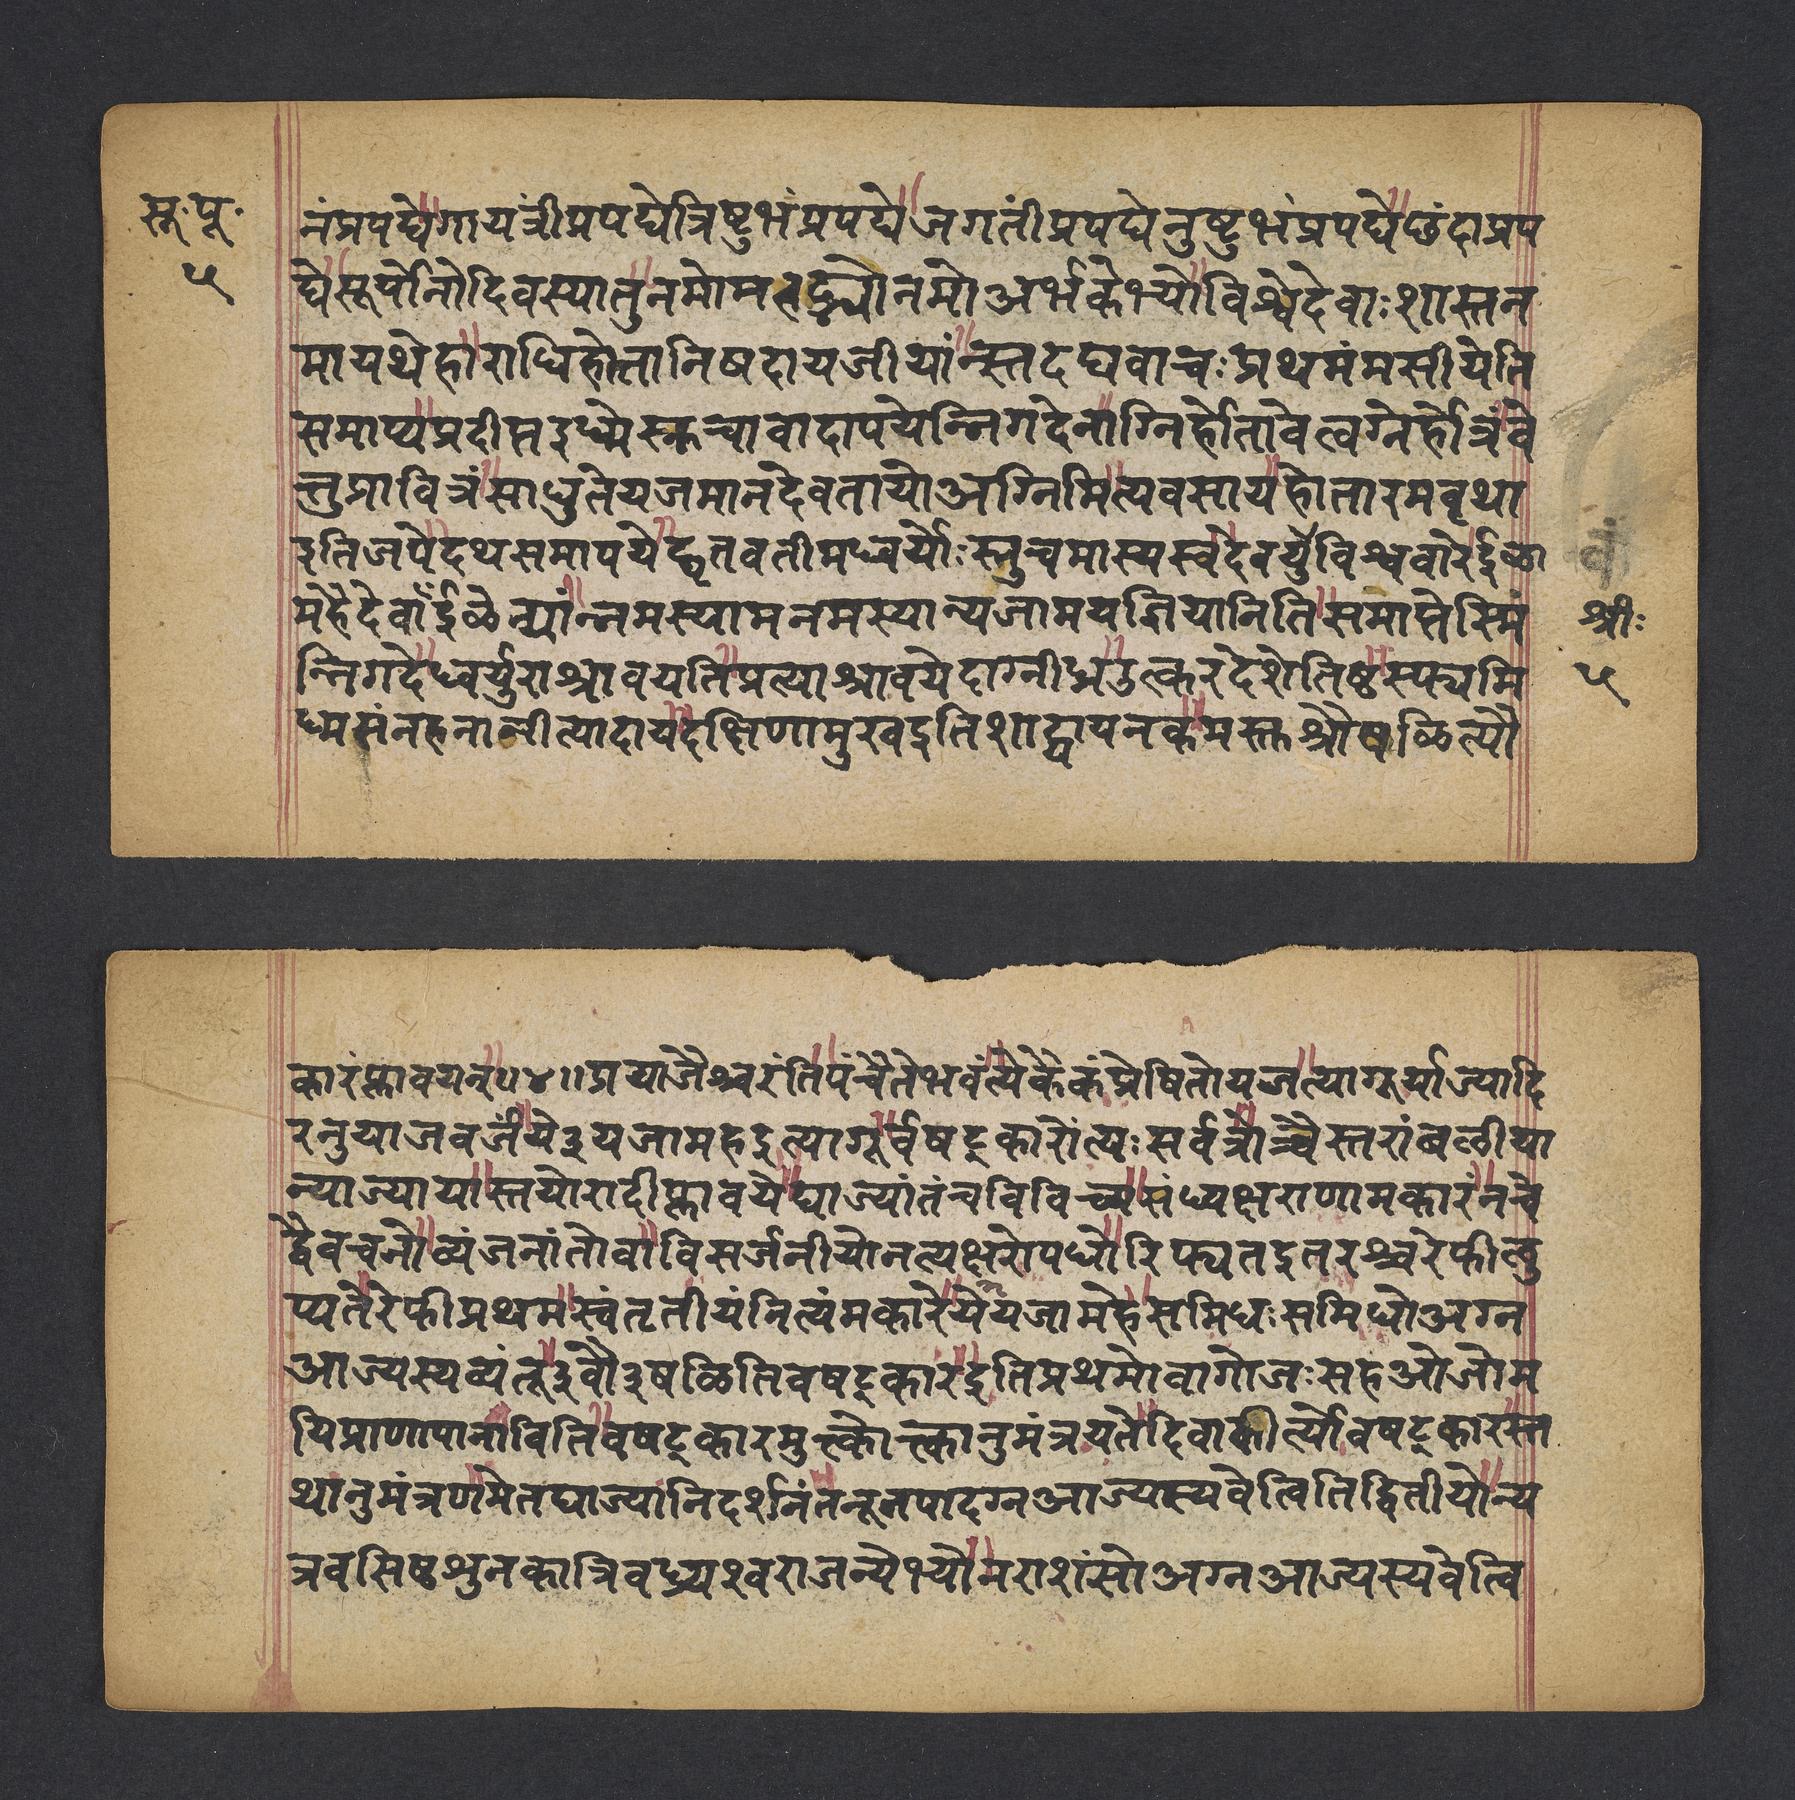 सू॰ पू॰
५
नंप्रपद्येगायत्रींप्रपद्येत्रिष्टुभंप्रपद्येजगतींप्रपद्येनुष्टुभंप्रपद्येछंदाप्रप
द्येसूर्योनोदिवस्पातुनमोमहद्भ्योनमोअर्भकेभ्योविश्वेदेवाःशास्तन
मायथेहाराधिहोतानिषदायजीयांन्स्तदद्यवाचःप्रथमंमसीयेति
समाप्यप्रदीप्तइध्मेस्रुचावादापयेन्निगदेनाग्निर्होतावेत्वग्नेर्होत्रंवे
त्तुप्रावित्रंसाधुतेयजमानदेवतायोअग्निमित्यवसायहोतारमवृथा
इतिजपेदथसमापयेद्घृतवतीमध्वर्योःस्रुचमास्यस्वदेवयुंविश्ववारेईळा
महैदेवाँईळेन्यांन्नमस्यामनमस्यान्यजामयज्ञियानितिसमाप्तेस्मिं
न्निगदेध्वर्युराश्रावयतिप्रत्याश्रावयेदाग्नीध्रउत्करदेशेतिष्ठस्फ्यमि
ध्मसंनहनानीत्यादायदक्षिणामुखइतिशाट्यायनकमस्तश्रौषळित्यौ
वं
श्रीः
५
कारंप्लावयन्॥४॥प्रयाजैश्चरंतिपंचैतेभवंत्येकैकंप्रेषितोयजत्यागूर्याज्यादि
रनुयाजवर्जंये३यजामहइत्यागूर्वषट्कारोंत्यःसर्वत्रोच्चैस्तरांबळीया
न्याज्यायास्तयोरादीप्लावयेद्याज्यांतंचविविच्यसंध्यक्षराणामकारंनचे
द्वैवचनोव्यंजनांतोवाविसर्जनीयोनत्यक्षरोपधोरिफ्यतइतरश्चरेफीलु
प्यतेरेफीप्रथमस्वंतृतीयंनित्यंमकारेयेयजामहेसमिधःसमिधोअग्न
आज्यस्यव्यंतू३वौ३षळितिवषट्कारइतिप्रथमोवागोजःसहओजोम
यिप्राणापानावितिवषट्कारमुक्त्कोत्कानुमंत्रयतेदिवाकीर्त्योवषट्कारस्त
थानुमंत्रणमेतद्याज्यानिदर्शनंतनूनपादग्नआज्यस्यवेत्वितिद्वितीयोन्य
त्रवसिष्ठशुनकात्रिवध्र्यश्वराजन्येभ्योनराशंसोअग्नआज्यस्यवेत्वि